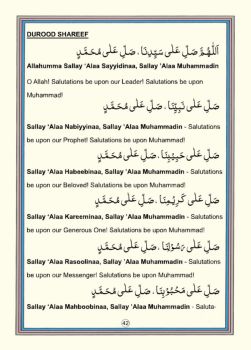 DUROOD SHAREEF
اَللّٰهُمَّ صَلِّ عَلٰى سَيِّدِنَا ، صَلِّ عَلٰى مُحَمَّدٍ
Allahumma Sallay 'Alaa Sayyidinaa, Sallay 'Alaa Muhammadin
O Allah! Salutations be upon our Leader! Salutations be upon
Muhammad!
صَلِّ عَلٰى نَبِيِّنَا ، صَلِّ عَلٰى مُحَمَّدٍ
Sallay 'Alaa Nabiyyinaa, Sallay 'Alaa Muhammadin - Salutations
be upon our Prophet! Salutations be upon Muhammad!
صَلِّ عَلٰى حَبِيْبِنَا ، صَلِّ عَلٰى مُحَمَّدٍ
Sallay 'Alaa Habeebinaa, Sallay 'Alaa Muhammadin - Salutations
be upon our Beloved! Salutations be upon Muhammad!
صَلِّ عَلٰى كَرِيْمِنَا ، صَلِّ عَلٰى مُحَمَّدٍ
Sallay 'Alaa Kareeminaa, Sallay 'Alaa Muhammadin - Salutations
be upon our Generous One! Salutations be upon Muhammad!
صَلِّ عَلٰى رَسُوْلِنَا ، صَلِّ عَلٰى مُحَمَّدٍ
Sallay 'Alaa Rasoolinaa, Sallay 'Alaa Muhammadin - Salutations
be upon our Messenger! Salutations be upon Muhammad!
صَلِّ عَلٰى مَحْبُوْبِنَا ، صَلِّ عَلٰى مُحَمَّدٍ
Sallay 'Alaa Mahboobinaa, Sallay 'Alaa Muhammadin - Saluta-
42